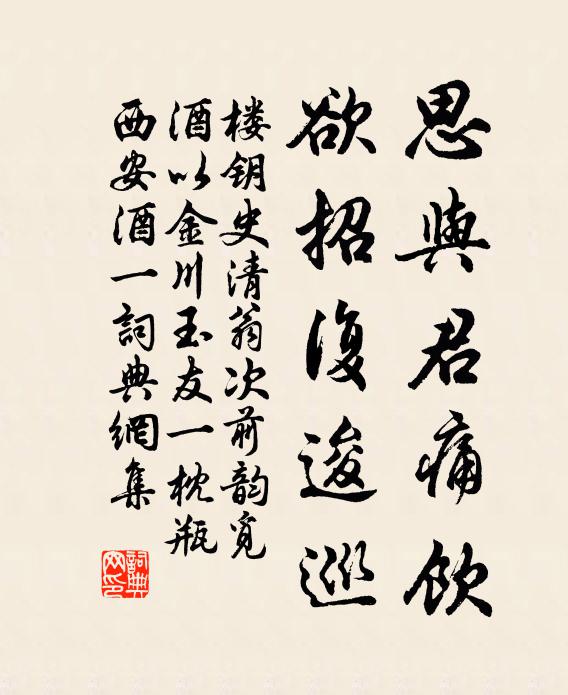 思與君痛飲
欲招復逡巡
楼钥史清翁次前韵覓
酒以金川玉友一枕瓶
西安酒一詞典網集
詞典网印